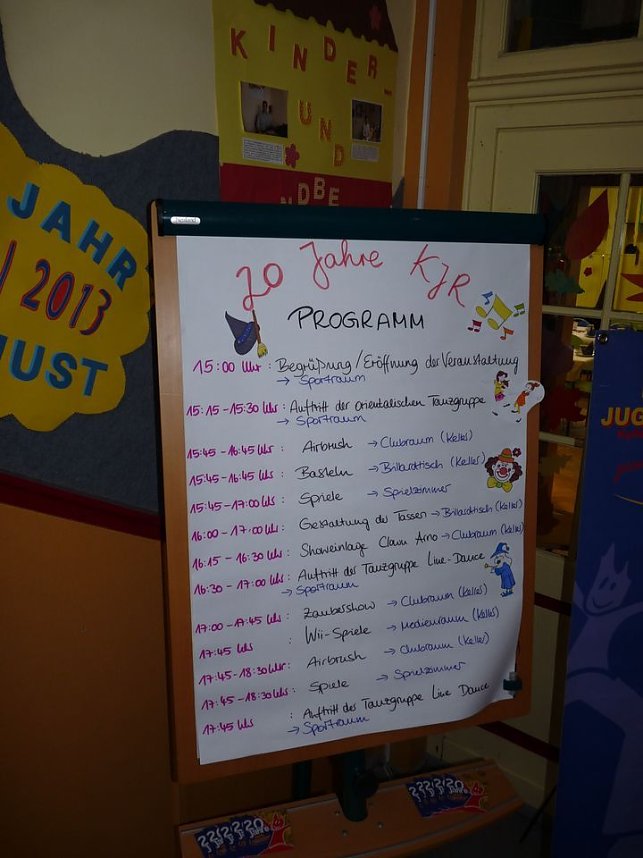 KINDER-
UND
JAHR
2013
UST
20 Jahre KJR
PROGRAMM
15:00 Uhr : Begrüßung/Eröffnung der Veranstaltung
→ Sportraum
15:15-15:30 Uhr : Auftritt der orientalischen Tanzgruppe
→ Sportraum
15:45-16:45 Uhr : Airbrush → Clubraum (Keller)
15:45-16:45 Uhr : Basteln → Billardtisch (Keller)
15:45-17:00 Uhr : Spiele → Spielzimmer
16:00-17:00 Uhr : Gestaltung der Tassen → Billardtisch (Keller)
16:15-16:30 Uhr : Showeinlage Clown Arno → Clubraum (Keller)
16:30-17:00 Uhr : Auftritt der Tanzgruppe Line-Dance
→ Sportraum
17:00-17:45 Uhr : Zaubershow → Clubraum (Keller)
17:45 Uhr : Wii-Spiele → Medienraum (Keller)
17:45-18:30 Uhr : Airbrush → Clubraum (Keller)
17:45-18:30 Uhr : Spiele → Spielzimmer
17:45 Uhr : Auftritt der Tanzgruppe Line Dance
→ Sportraum
JUG